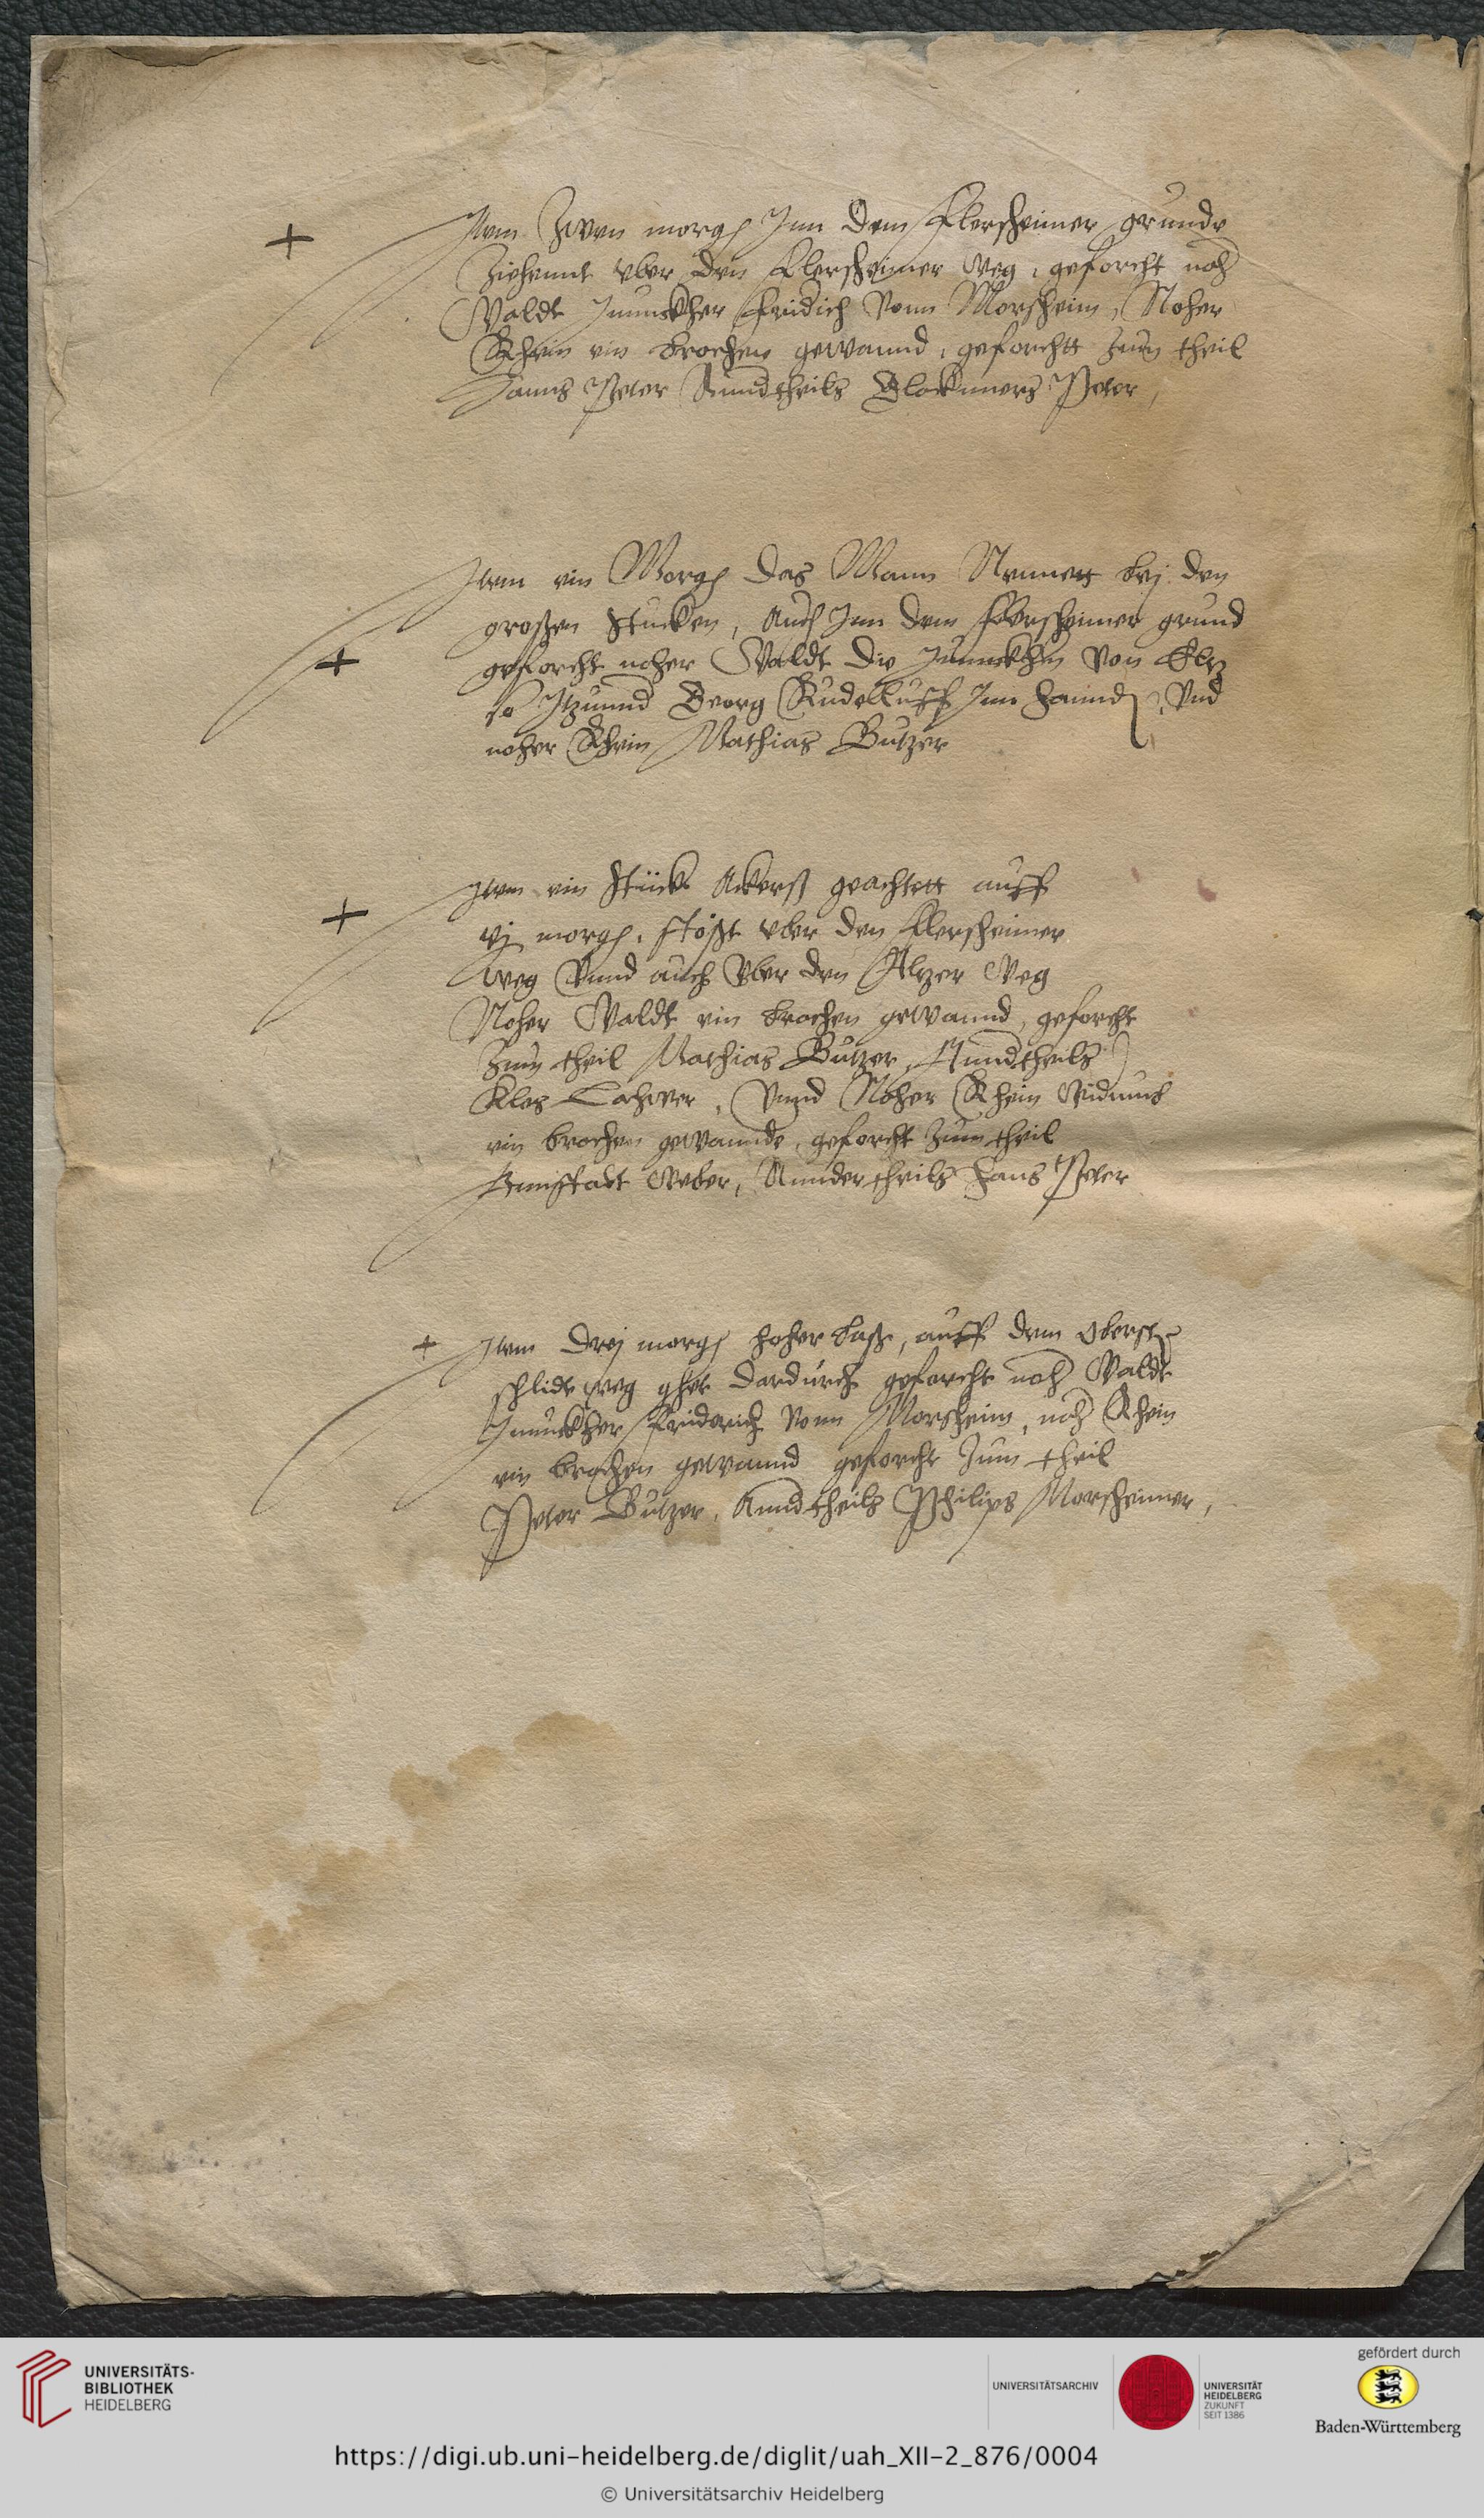 + Item Zwen morg Inn dem Flersheimer grunde
Ziehennt vber den Flersheimer Weg, geforcht noh
Waldt Junnckher Fridich vonn Morsheim, Noher
Rhein ein brochen gewannd, geforchtt zum theil
Hanns Peter Anndtheils Glockeners Peter,
Item ein Morg das Mann Nennett bej den
großen stucken, Auch Inn dem Flersheimer grund
+ geforcht noher Waldt die Junnckhern von Eltz
so Itzunnd Georg Inn hannd, Vnd
noher Rhein Mathias Butzer
Item ein stück Ackerß geachtett auff
+ vj morg, stößt vber den Flersheimer
weg Vnnd auch Vber den Altzer Weg
Noher Waldt ein brochen gewannd, geforcht
Zum theil Mathias Butzer, Anndtheils
Kles Vnnd Noher Rhein Widumb
ein brochen gewannde, geforcht Zum theil
Weber, Annder theils Hans Peter
+ Item Drej morg hoher baß, auff dem
schlidtweg ghet dardurch geforcht noh Waldt
Junnckher Friderich vonn Morsheim, noh Rhein
ein brochen gewannd geforcht Zum theil
Peter Butzer, Anndtheils Philips Morsheimer,
UNIVERSITÄTS-
BIBLIOTHEK
HEIDELBERG
UNIVERSITÄTSARCHIV
UNIVERSITÄT
HEIDELBERG
ZUKUNFT
SEIT 1386
gefördert durch
Baden-Württemberg
https://digi.ub.uni-heidelberg.de/diglit/uah_XII-2_876/0004
© Universitätsarchiv Heidelberg